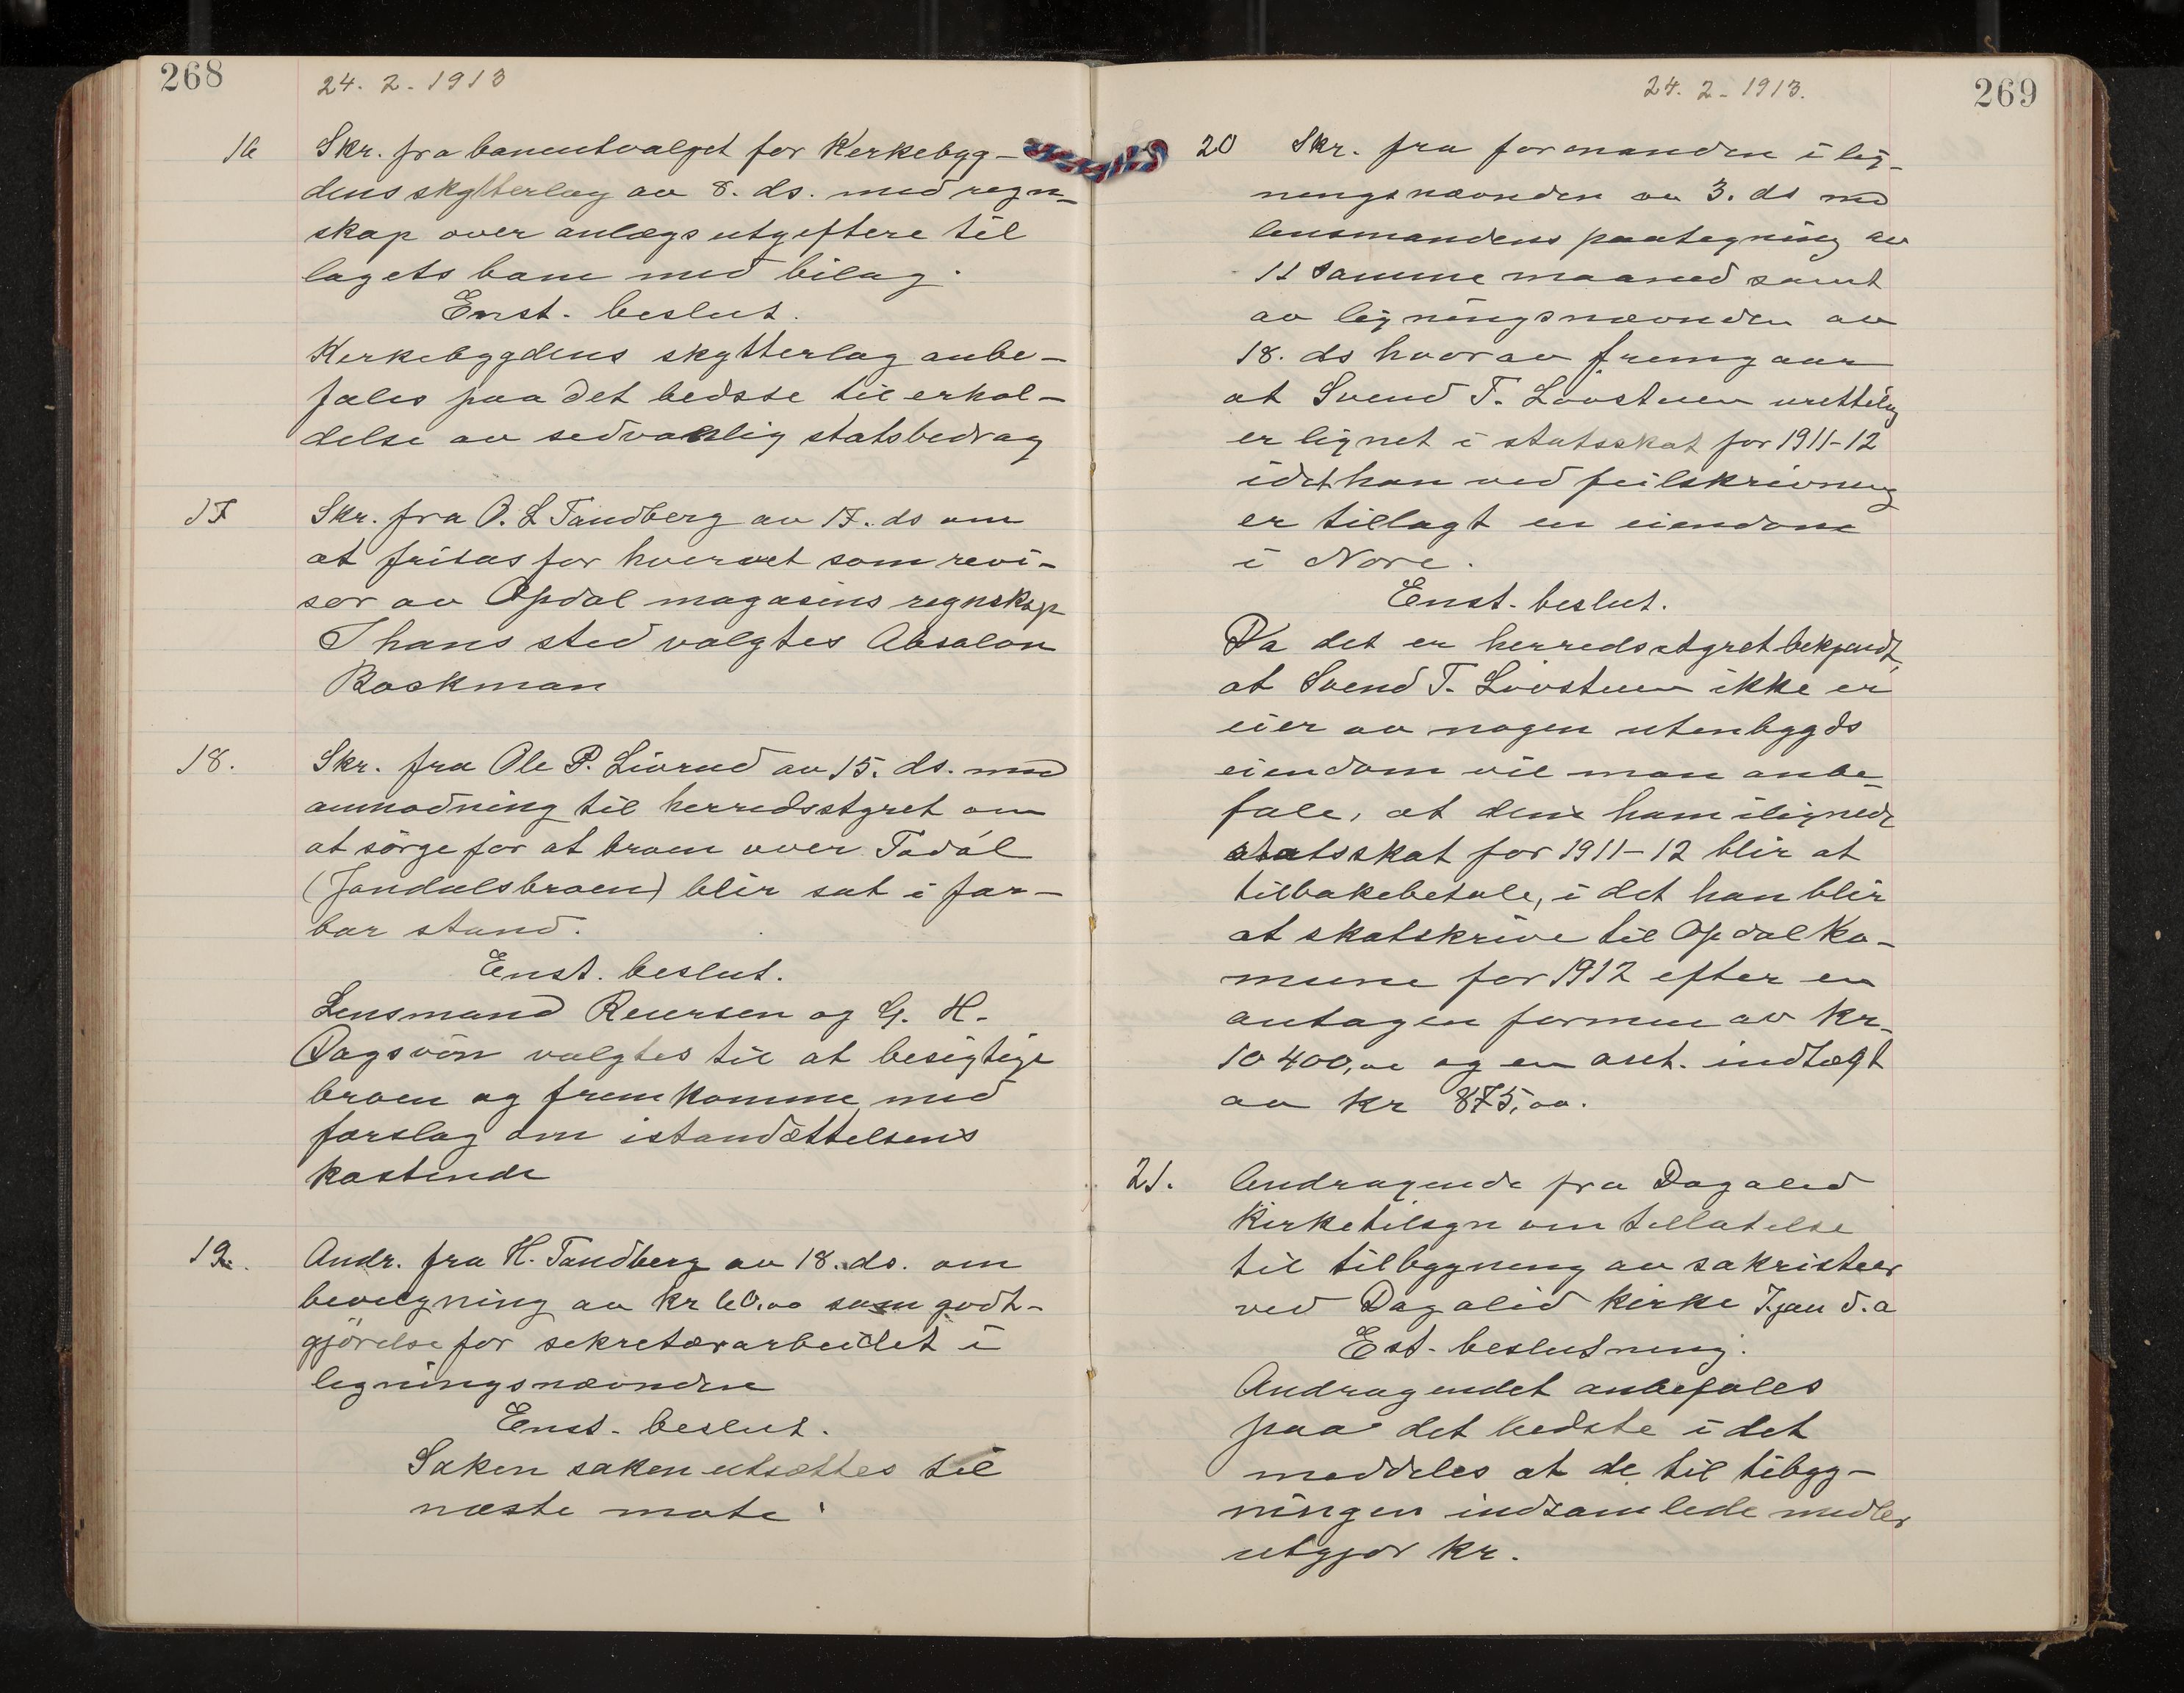 268
24. 2. 1913
16 Skr. fra baneutvalget for Kerkebygg-
dens skytterlag av 8. ds. med regn-
skap over anlægsutgeftere til
lagets bane med bilag.
Enst. beslut.
Kerkebygdens skytterlag anbe-
fales paa det bedste til erhol-
delse av sedvanlig statsbedrag
17 Skr. fra O. L. Tandberg av 17. ds om
at fritas for hvervet som revi-
sor av Opdal magasins regnskap
I hans sted valgtes Absalon
Backman
18. Skr. fra Ole P. Livrud av 15. ds. med
anmodning til herredsstyret om
at sörge for at broen over Tadöl
(Jondalsbroen) blir sat i far-
bar stand.
Enst. beslut.
Lensmand Reuersen og G. H.
Dagsvön valgtes til at besigtige
broen og fremkomme med
forslag om istandsættelsens
kostende
19. Andr. fra H. Tandberg av 18. ds. om
bevilgning av kr 60,00 som godt-
gjörelse for sekretærarbeidet i
ligningsnævnden
Enst. beslut.
Saken saken utsættes til
næste mote
24. 2. 1913.
269
20 Skr. fra formanden i lig-
ningsnævnden av 3. ds med
lensmandens paategning av
11 samme maaned samt
av ligningsnævnden av
18. ds hvorav fremgaar
at Svend T. Lövstuen urettelig
er lignet i statsskat for 1911-12
idet han ved feilskrivning
er tillagt en eiendom
i Nore.
Enst. beslut.
Da det er herredsstyret bekjendt,
at Svend T. Lövstuen ikke er
eier av nogen utenbygds
eiendom vil man anbe-
fale, at den ham ilignede
statsskat for 1911-12 blir at
tilbakebetale, i det han blir
at skatskrive til Opdal Ko-
mune for 1912 efter en
antagen formue av Kr.
10 400,00 og en ant. indtægt
av kr 875,00.
21. Andragende fra Dagalid
Kirketilsyn om tillatelse
til tilbygning av sakristier
ved Dagalid Kirke 7. jan d. a
Est. beslutning.
Andragendet anbefales
paa det bedste i det
meddeles at de til tibygg-
ningen indsamlede midler
utgjør kr.